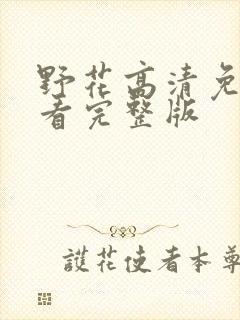 野花高清免
看完整版
護花使者本尊